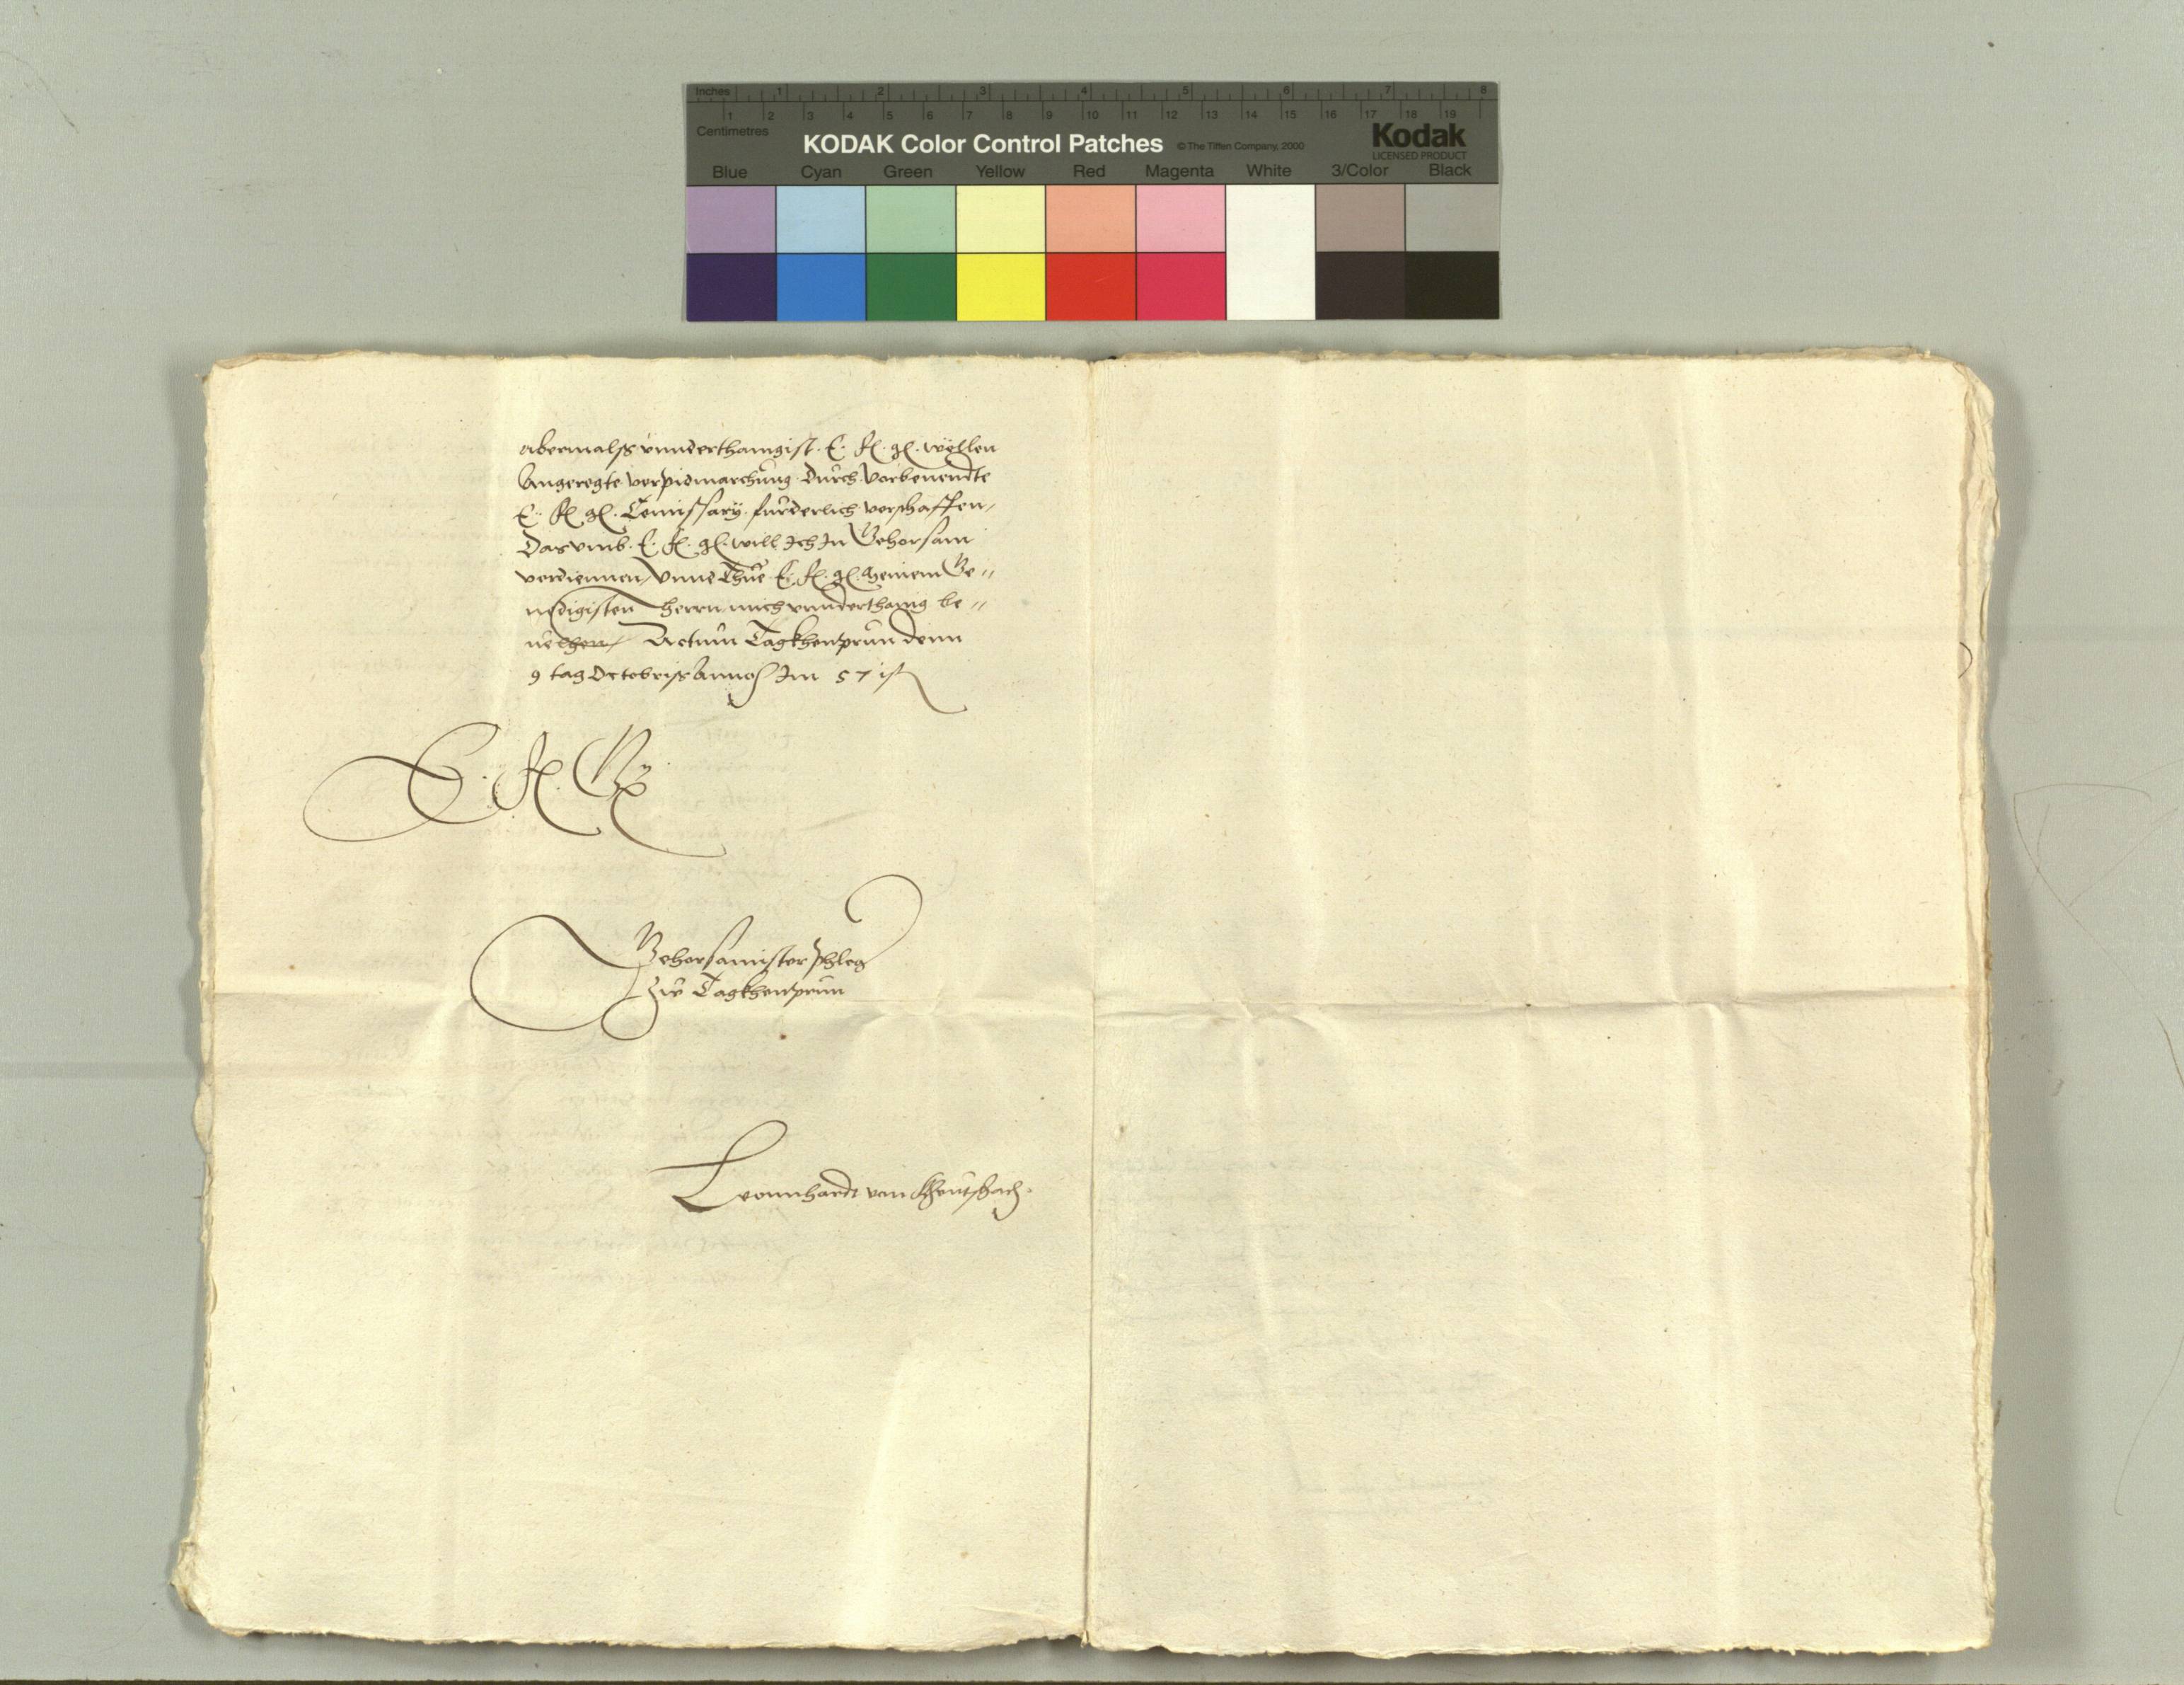 Inches 1 2 3 4 5 6 7 8
1 2 3 4 5 6 7 8 9 10 11 12 13 14 15 16 17 18 19
Centimetres
KODAK Color Control Patches © The Tiffen Company, 2000 Kodak
LICENSED PRODUCT
Blue Cyan Green Yellow Red Magenta White 3/Color Black
abermalss vnnderthanigist. E. fl. gl. wöllen
Angeregte verpidmarchung durch vorbenendte
E. fl. gl. Comissary. furderlich verschaffen,
Das vmb. E. fl. gl. will Ich In Gehorsam
verdiennen, Vnnd Thue E. fl. gl. meinem Ge//
nedigisten Herrn mich vnnderthanig be//
uelhen, Actum Tagkhenprun denn
9 tag Octobriss Anno Im 57 ist
E. fl. G
Gehorsamister phleg
zu Tagkhenprun
Leonnhardt von Kheutschach.